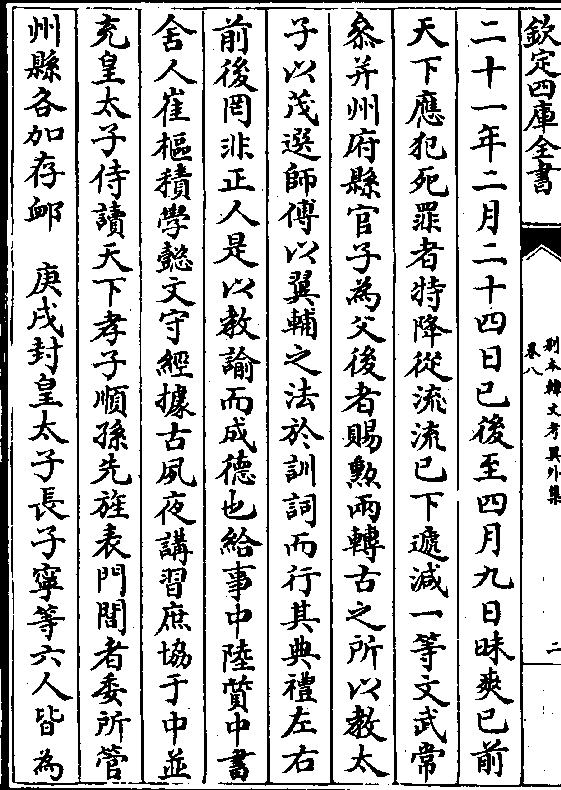 欽定四庫全書
別本韓文考異外集
卷八
二
二十一年二月二十四日已後至四月九日昧爽已前
天下應犯死罪者特降從流流已下遞減一等文武常
叅并州府縣官子為父後者賜勲兩轉古之所以教太
子以茂選師傅以翼輔之法於訓詞而行其典禮左右
前後罔非正人是以教諭而成德也給事中陸質中書
舍人崔樞積學懿文守經據古夙夜講習庶協于中並
充皇太子侍讀天下孝子順孫先旌表門閭者委所管
州縣各加存卹　庚戌封皇太子長子寧等六人皆為